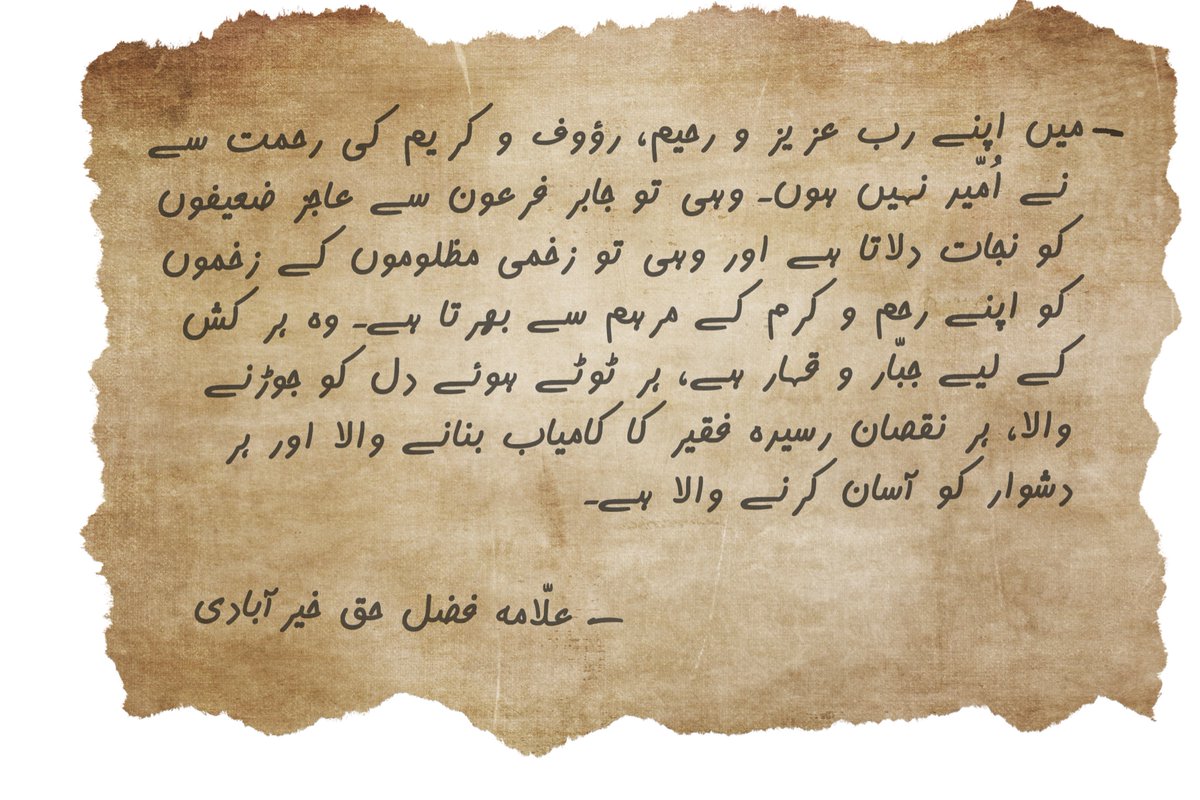 — میں اپنے رب عزیز و رحیم، رؤوف و کریم کی رحمت سے
نے اُمّیر نہیں ہوں۔ وہی تو جابر فرعون سے عاجز ضعیفوں
کو نجات دلاتا ہے اور وہی تو زخمی مظلوموں کے زخموں
کو اپنے رحم و کرم کے مرہم سے بھرتا ہے۔ وہ ہر کش
کے لیے جبّار و قہار ہے، ہر ٹوٹے ہوئے دل کو جوڑنے
والا، ہر نقصان رسیرہ فقیر کا کامیاب بنانے والا اور ہر
دشوار کو آسان کرنے والا ہے۔
— علّامہ فضل حق خیرآبادی